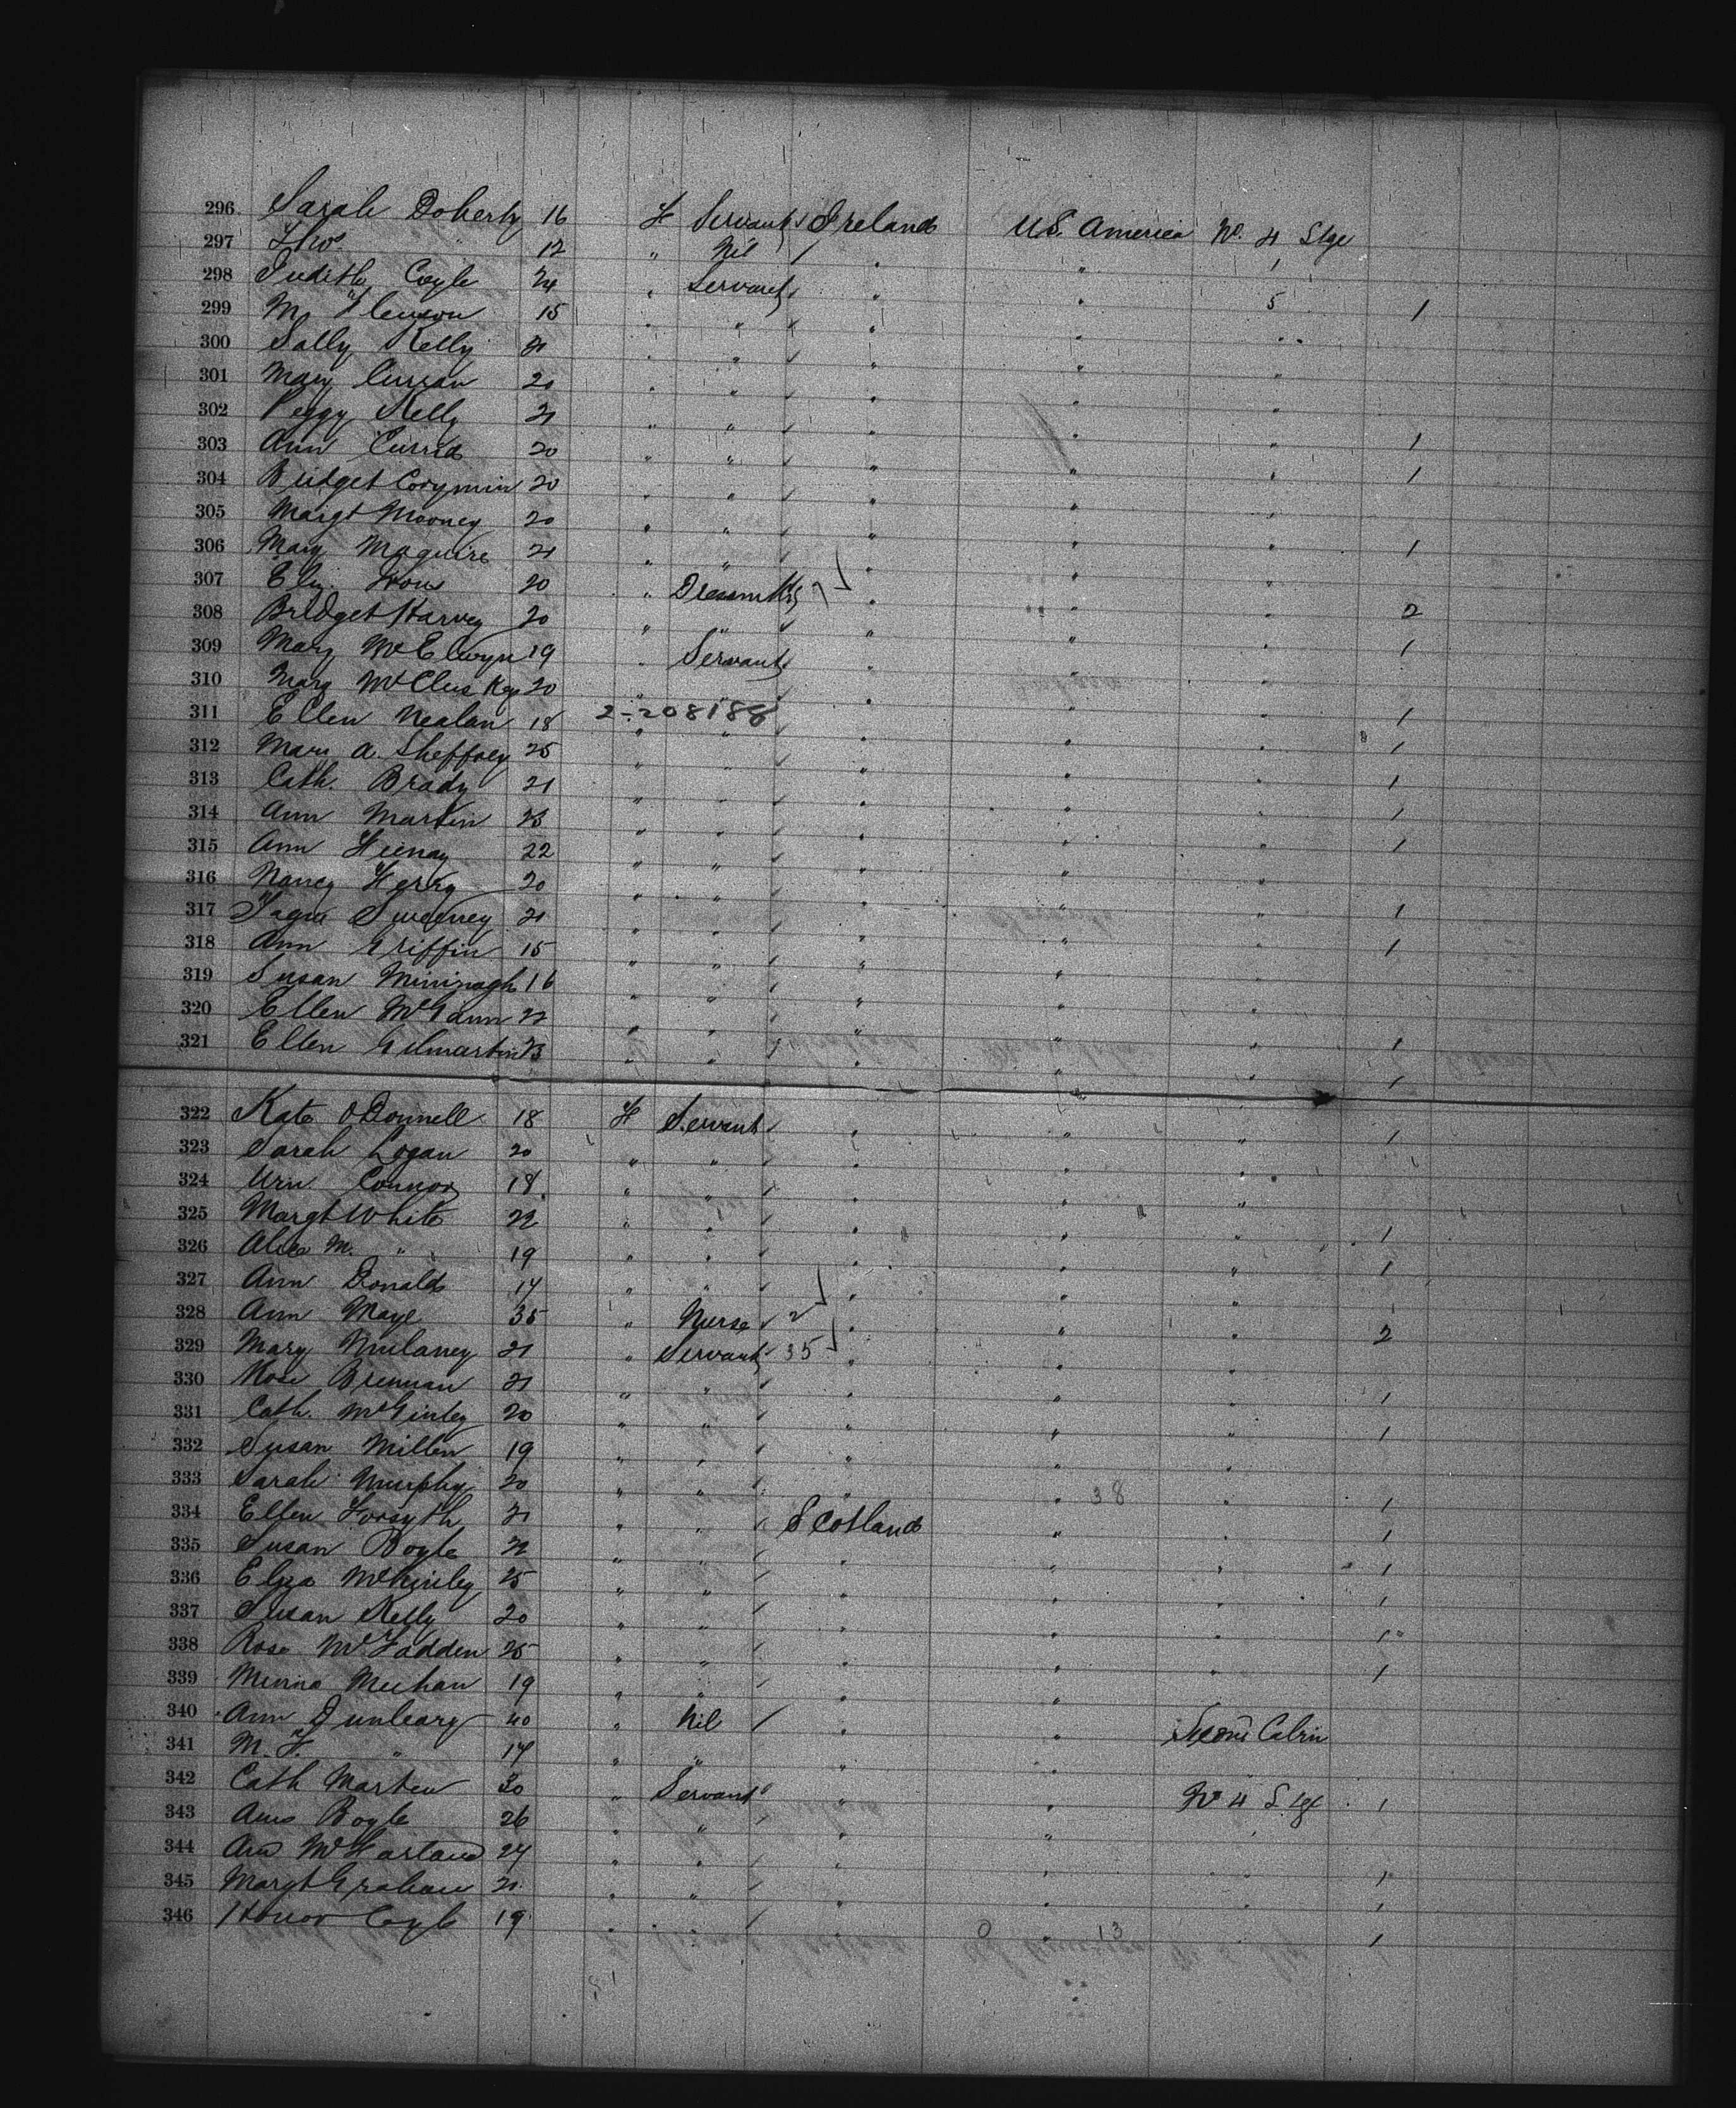 296 Sarah Doherty 16 F Servant Ireland U.S. America No. 4 Stge
297 Thos " 12 " Nil " " 1
298 Judith Coyle 24 " Servant " " 5 1
299 M. 15 " " " "
300 Sally Kelly 21 " " " "
301 Mary Curran 20 " " " "
302 Peggy Kelly 21 " " " " 1
303 Ann Currid 20 " " " " 1
304 Bridget 20 " " " "
305 Margt Mooney 20 " " " " 1
306 Mary Maguire 21 " " " "
307 Eliz. 20 " Dressmkr 7 " " " 2
308 Bridget Harvey 20 " " " " 1
309 Mary McElwyn 19 " Servant " " "
310 Mary McCluskey 20 " " " " 1
311 Ellen Nealan 18 2-208188 " " " 1
312 Mary A. Sheffrey 25 " " " " 1
313 Cath. Brady 21 " " " " 1
314 Ann Martin 23 " " " " 1
315 Ann 22 " " " "
316 Nancy 20 " " " " 1
317 Sweeney 21 " " " " 1
318 Ann Griffin 15 " " " "
319 Susan 16 " " " "
320 Ellen McGann 22 " " " " 1
321 Ellen Gilmartin 23 " " " " 1
322 Kate O'Donnell 18 F Servant " " " 1
323 Sarah Logan 20 " " " "
324 Connor 18 " " " "
325 Margt White 22 " " " " 1
326 Alice M. " 19 " " " " 1
327 Ann Donald 17 " " " "
328 Ann Maye 35 " Nurse 2 " " " 2
329 Mary Mulaney 21 " Servant 35 " " "
330 Rose Brennan 21 " " " " 1
331 Cath. McGinley 20 " " " " 1
332 Susan Millen 19 " " " "
333 Sarah Murphy 20 " " " " 38 1
334 Ellen Forsyth 21 " " Scotland " " 1
335 Susan Boyle 22 " " " " 1
336 Eliza McKinley 25 " " " " 1
337 Susan Kelly 20 " " " " 1
338 Rose McFadden 25 " " " " 1
339 Minna Meehan 19 " " " "
340 Ann Dunleary 40 " Nil " " Second Cabin
341 M. F. " 17 " " " "
342 Cath Martin 30 " Servant " " No 4 Stge 1
343 Boyle 26 " " " "
344 McFarland 24 " " " " 1
345 Margt Graham 21 " " " " 1
346 Honor Coyle 19 " " " 13 1